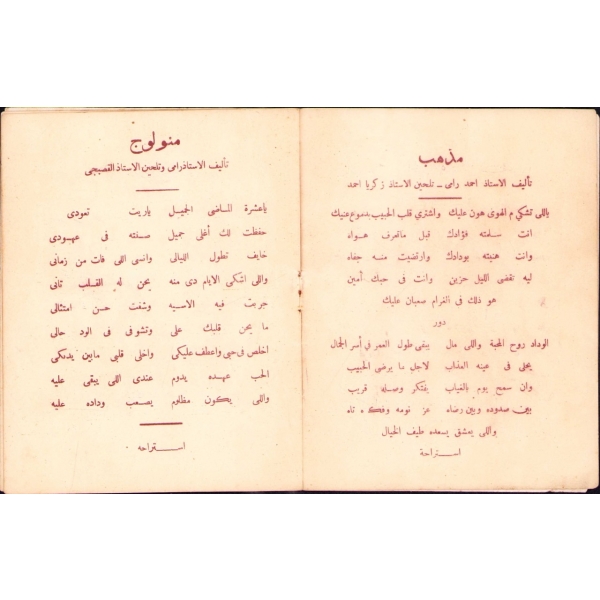 مذهب
تأليف الاستاذ احمد رامى ــ تلحين الاستاذ زكريا احمد
ياللى تشكي م الهوى هون عليك واشترى قلب الحبيب بدموع عنيك
انت سلمته فؤادك قبل ماتعرف هواه
وانت هنيته بودادك وارتضيت منه جفاه
ليه تقضى الليل حزين وانت فى حبك أمين
هو ذلك فى الغرام صعبان عليك
دور
الوداد روح المحبة واللى مال يبقى طول العمر فى أسر الجمال
يحلى فى عينه العذاب لاجل ما يرضى الحبيب
وان سمح يوم بالغياب يفتكر وصله قريب
بين صدوده وبين رضاه عز نومه وفكره تاه
واللى يعشق يسعده طيف الخيال
استراحة
منولوج
تأليف الاستاذ رامى وتلحين الاستاذ القصبجى
ياعشرة الماضى الجميل ياريت تعودى
حفظت لك أغلى جميل صنته فى عهودى
خايف تطول الليالى وانسى اللى فات من زمانى
واللى اشكى الايام دى منه يحن له القلب تانى
جربت فيه الاسيه وشفت حسن امتثالى
ما يحن قلبك على وتشوفى فى الود حالى
اخلص فى حبى واعطف عليكى واخلى قلبى مابين يدىكى
الحب عهده يدوم عندى اللى يبقى عليه
واللى يكون مظلوم يصعب وداده عليه
استراحه